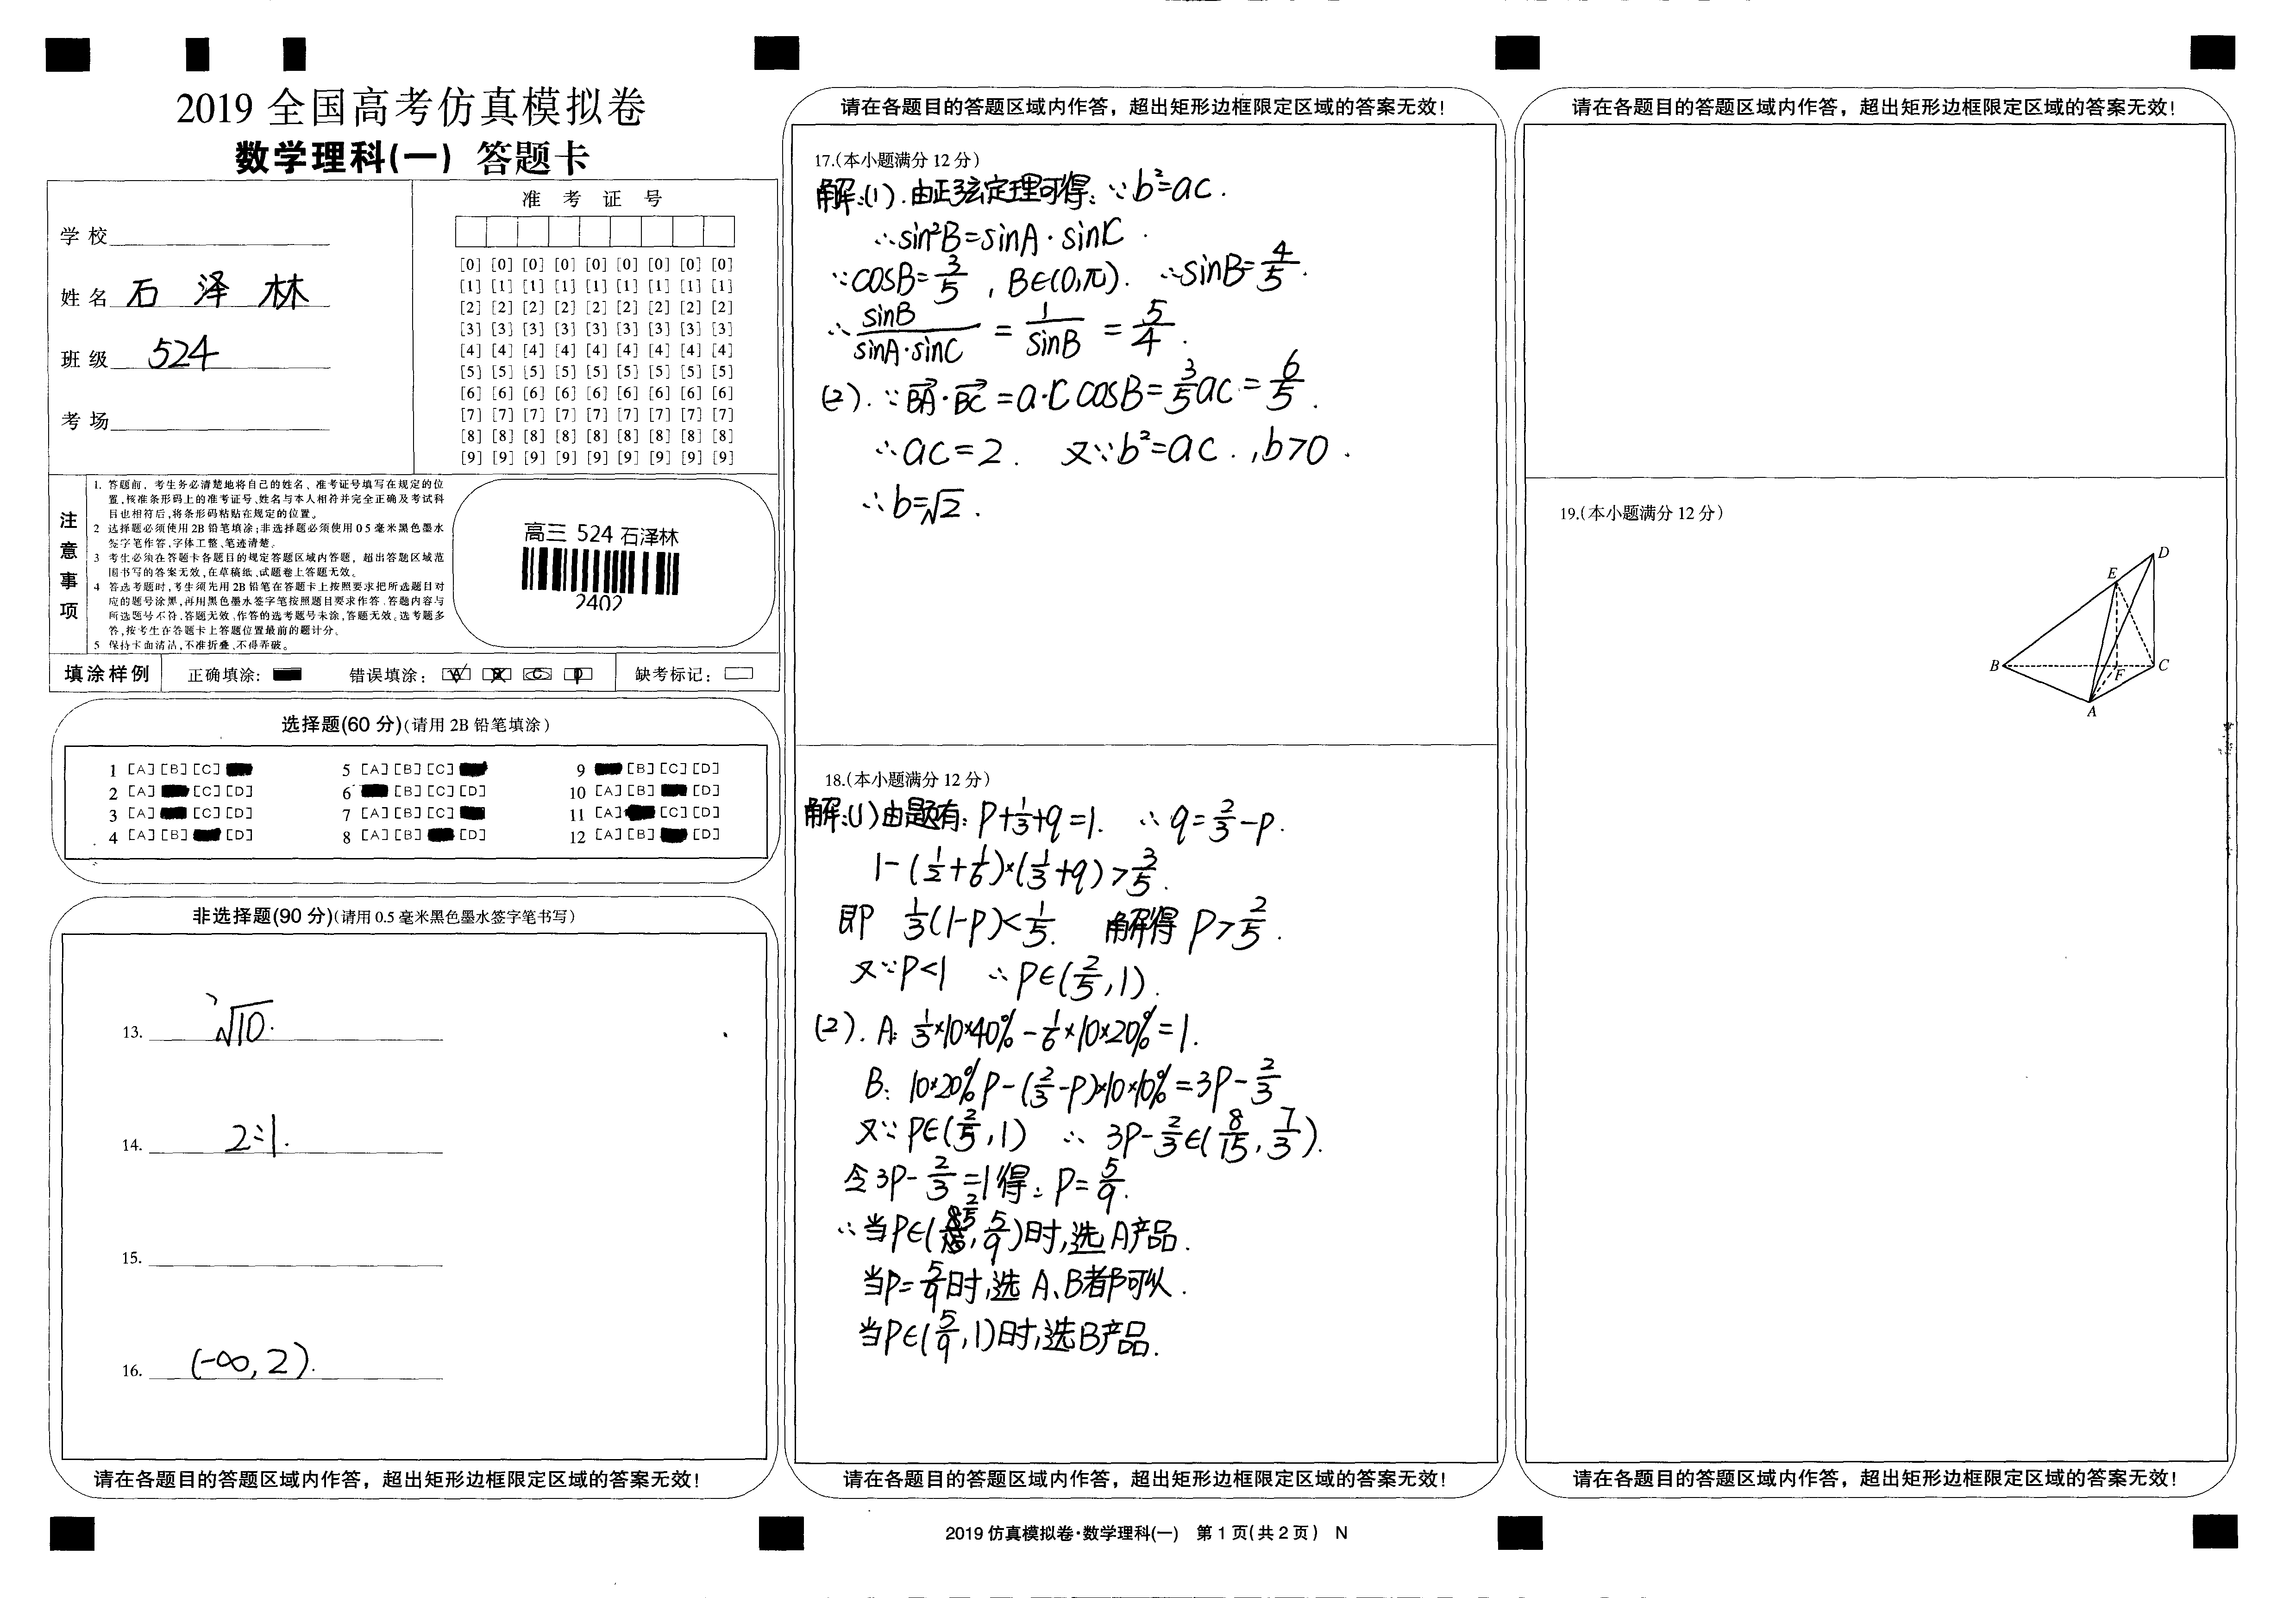 2019全国高考仿真模拟卷
数学理科(一) 答题卡
学校
姓名 石泽林
班级 524
考场
准考证号
[0] [0] [0] [0] [0] [0] [0] [0] [0]
[1] [1] [1] [1] [1] [1] [1] [1] [1]
[2] [2] [2] [2] [2] [2] [2] [2] [2]
[3] [3] [3] [3] [3] [3] [3] [3] [3]
[4] [4] [4] [4] [4] [4] [4] [4] [4]
[5] [5] [5] [5] [5] [5] [5] [5] [5]
[6] [6] [6] [6] [6] [6] [6] [6] [6]
[7] [7] [7] [7] [7] [7] [7] [7] [7]
[8] [8] [8] [8] [8] [8] [8] [8] [8]
[9] [9] [9] [9] [9] [9] [9] [9] [9]
注意事项
1. 答题前,考生务必清楚地将自己的姓名、准考证号填写在规定的位
置,核准条形码上的准考证号、姓名与本人相符并完全正确及考试科
目也相符后,将条形码粘贴在规定的位置。
2 选择题必须使用2B铅笔填涂;非选择题必须使用05毫米黑色墨水
签字笔作答,字体工整、笔迹清楚。
3 考生必须在答题卡各题目的规定答题区域内答题,超出答题区域范
围书写的答案无效,在草稿纸、试题卷上答题无效。
4 答选考题时,考生须先用2B铅笔在答题卡上按照要求把所选题目对
应的题号涂黑,再用黑色墨水签字笔按照题目要求作答.答题内容与
所选题号不符,答题无效,作答的选考题号未涂,答题无效。选考题多
答,按考生在答题卡上答题位置最前的题计分。
5 保持卡面清洁,不准折叠、不得弄破。
高三 524 石泽林
2402
填涂样例 正确填涂: 错误填涂: A B C D 缺考标记:
选择题(60分)(请用2B铅笔填涂)
1 [A] [B] [C] 5 [A] [B] [C] 9 [B] [C] [D]
2 [A] [C] [D] 6 [B] [C] [D] 10 [A] [B] [D]
3 [A] [C] [D] 7 [A] [B] [C] 11 [A] [C] [D]
4 [A] [B] [D] 8 [A] [B] [D] 12 [A] [B] [D]
非选择题(90分)(请用0.5毫米黑色墨水签字笔书写)
13. √10.
14. 2:1.
15.
16. (-∞,2).
请在各题目的答题区域内作答,超出矩形边框限定区域的答案无效!
请在各题目的答题区域内作答,超出矩形边框限定区域的答案无效!
17.(本小题满分12分)
解:(1).由正弦定理可得:∵b²=ac.
∴sin²B=sinA·sinC.
∵cosB=3/5,B∈(0,π). ∴sinB=4/5.
∴sinB/(sinA·sinC)=1/sinB=5/4.
(2).∵BA·BC=a·c cosB=3/5ac=6/5.
∴ac=2. 又∵b²=ac.,b>0.
∴b=√2.
18.(本小题满分12分)
解:(1)由题有:P+1/3+q=1. ∴q=2/3-P.
1-(1/2+1/6)×(1/3+q)>3/5.
即 1/3(1-P)<1/5. 解得P>2/5.
又∵P<1 ∴P∈(2/5,1).
(2).A:1/3×10×40%-1/6×10×20%=1.
B:10×20%P-(2/3-P)×10×10%=3P-2/3
又∵P∈(2/5,1) ∴3P-2/3∈(8/15,7/3).
令3P-2/3=1得:P=5/9.
∴当P∈(2/5,5/9)时,选A产品.
当P=5/9时,选A、B都可以.
当P∈(5/9,1)时,选B产品.
请在各题目的答题区域内作答,超出矩形边框限定区域的答案无效!
2019仿真模拟卷·数学理科(一) 第1页(共2页) N
请在各题目的答题区域内作答,超出矩形边框限定区域的答案无效!
19.(本小题满分12分)
D
E
B
F
C
A
请在各题目的答题区域内作答,超出矩形边框限定区域的答案无效!